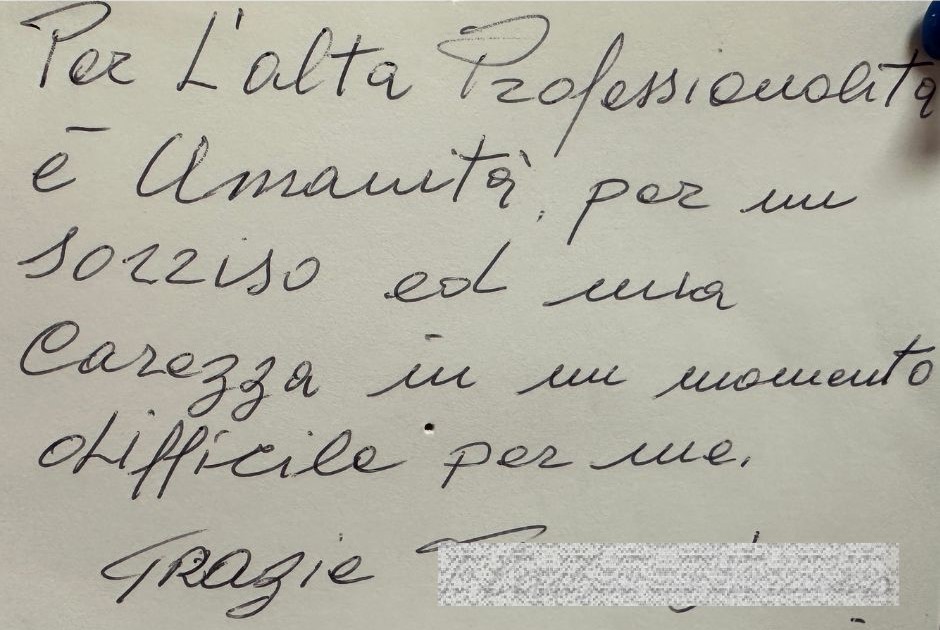 Per L'alta Professionalità
è Umanità, per un
sorriso ed una
Carezza in un momento
difficile per me.
Grazie